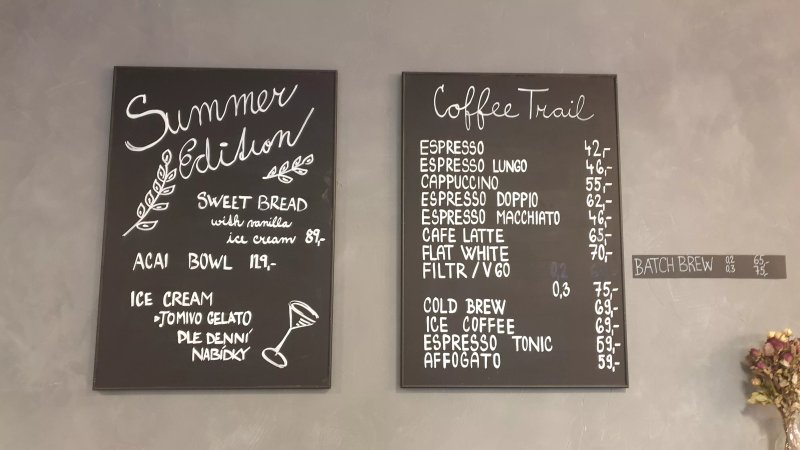 Summer
Edition
SWEET BREAD
with vanilla
ice cream 89,-
ACAI BOWL 129,-
ICE CREAM
JOMIVO GELATO
DLE DENNÍ
NABÍDKY
Coffee Trail
ESPRESSO 42,-
ESPRESSO LUNGO 46,-
CAPPUCCINO 55,-
ESPRESSO DOPPIO 62,-
ESPRESSO MACCHIATO 46,-
CAFE LATTE 65,-
FLAT WHITE 70,-
FILTR/V60 0,2
0,3 75,-
COLD BREW 69,-
ICE COFFEE 69,-
ESPRESSO TONIC 59,-
AFFOGATO 59,-
BATCH BREW 0,2 65,-
0,3 75,-